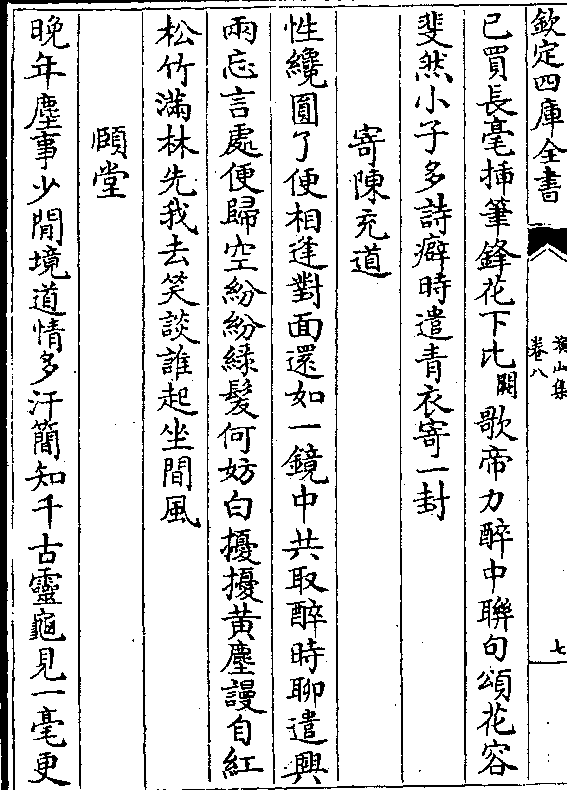 欽定四庫全書
橫山集
卷八
七
已買長毫揷筆鋒花下比闕歌帝力醉中聯句頌花容
斐然小子多詩癖時遣青衣寄一封
寄陳充道
性纔圓了便相逢對面還如一鏡中共取醉時聊遣興
兩忘言處便歸空紛紛緑髪何妨白擾擾黃塵謾自紅
松竹滿林先我去笑談誰起坐間風
頤堂
晚年塵事少閒境道情多汗簡知千古靈龜見一毫更